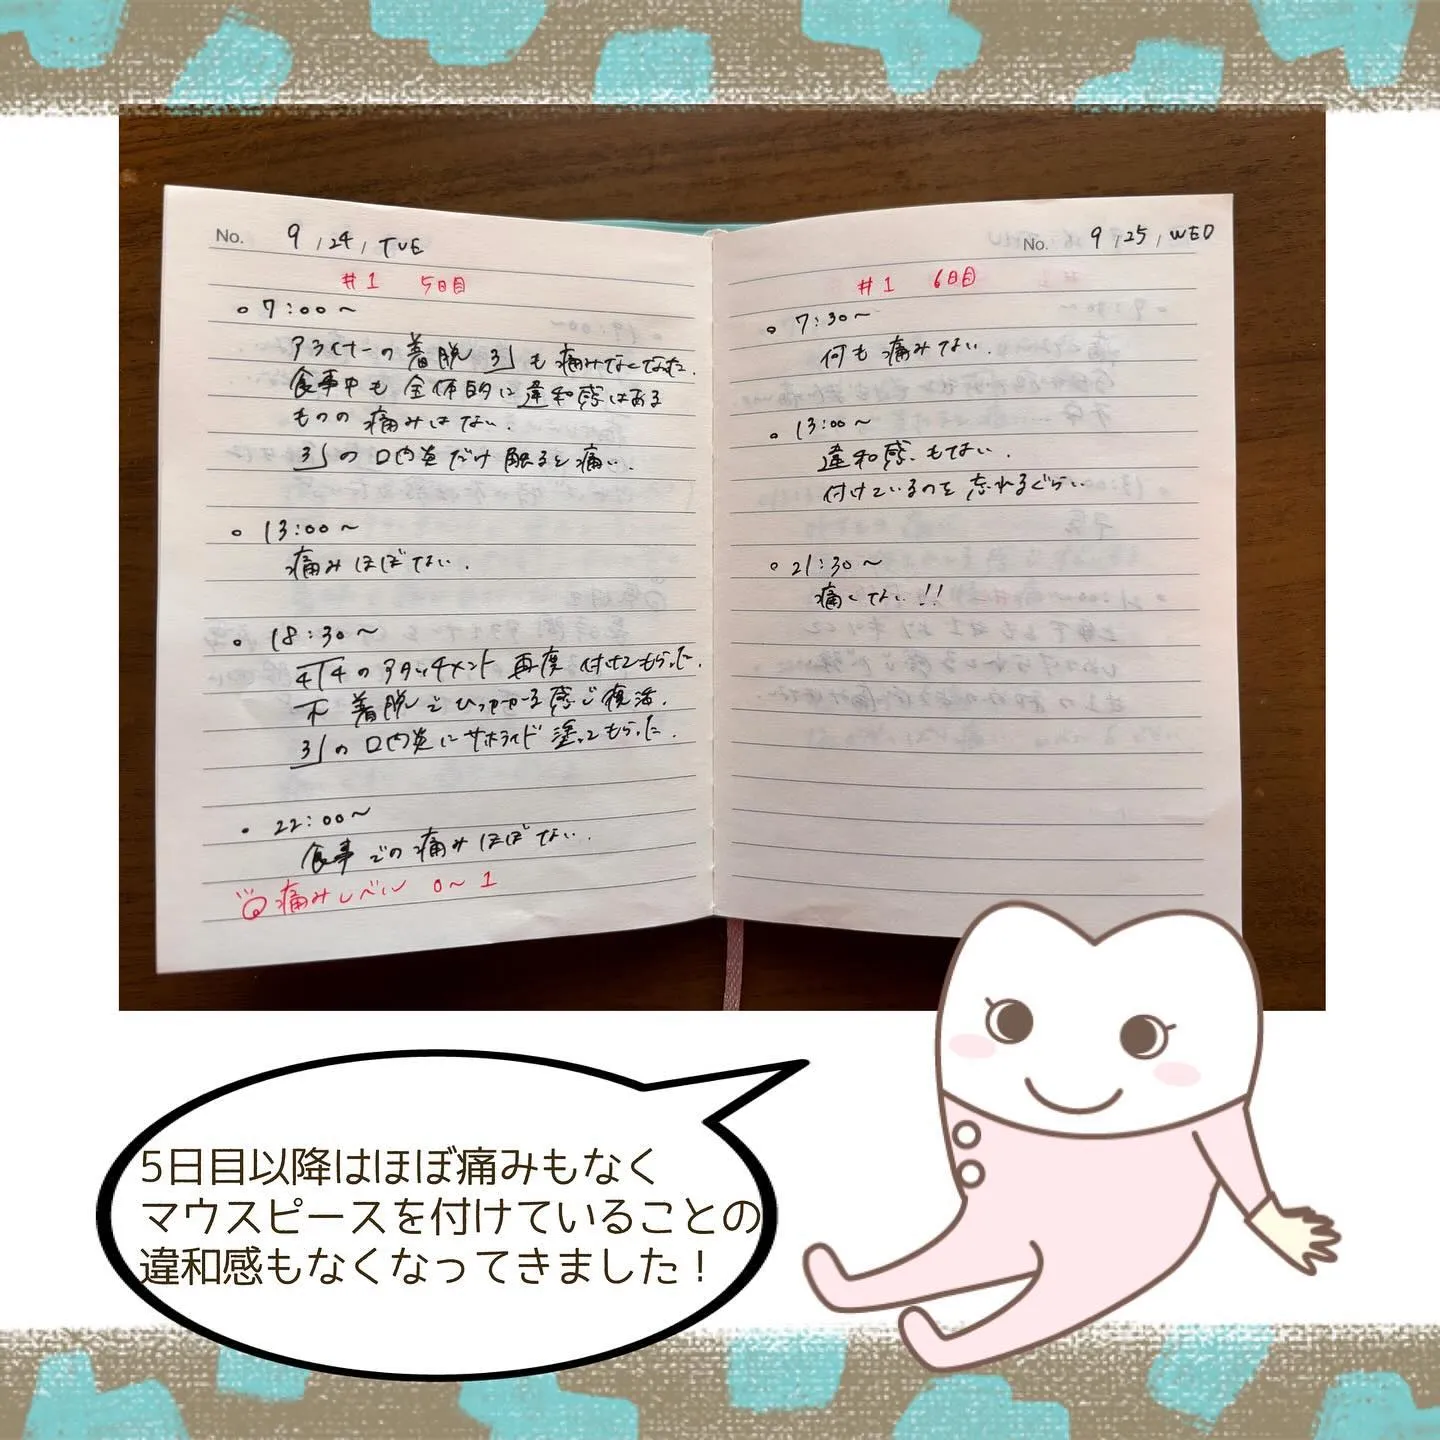 No. 9/24, TUE
#1 5日目
○ 7:00〜
アライナーの着脱 3┘も痛みなくなった.
食事中も全体的に違和感はある
ものの痛みはない.
3┘の口内炎だけ触ると痛い.
○ 13:00〜
痛みほぼない.
○ 18:30〜
4┬4のアタッチメント再度付けてもらった.
下 着脱でひっかかる感じ復活.
3┘の口内炎にサホライド塗ってもらった.
• 22:00〜
食事での痛みほぼない.
痛みレベル 0〜1
No. 9/25, WED
#1 6日目
○ 7:30〜
何も痛みない.
○ 13:00〜
違和感もない.
付けているのを忘れるぐらい
○ 21:30〜
痛くない!!
5日目以降はほぼ痛みもなく
マウスピースを付けていることの
違和感もなくなってきました!